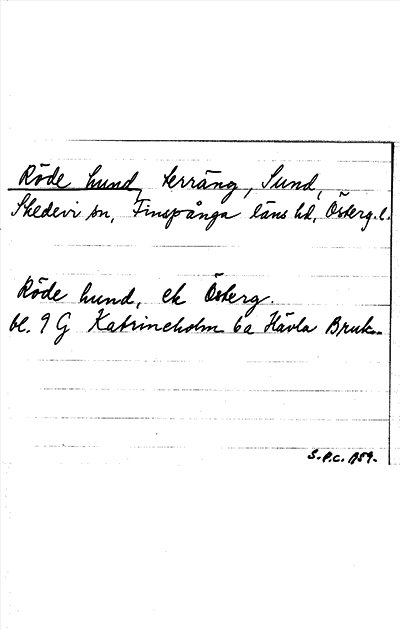 Röde hund, terräng, Sund,
Skedevi sn, Finspånga läns hd, Österg.l.
Röde hund, ek Österg.
bl. 9 G Katrineholm 6a Hävla Bruk
S.P.C. 1959.